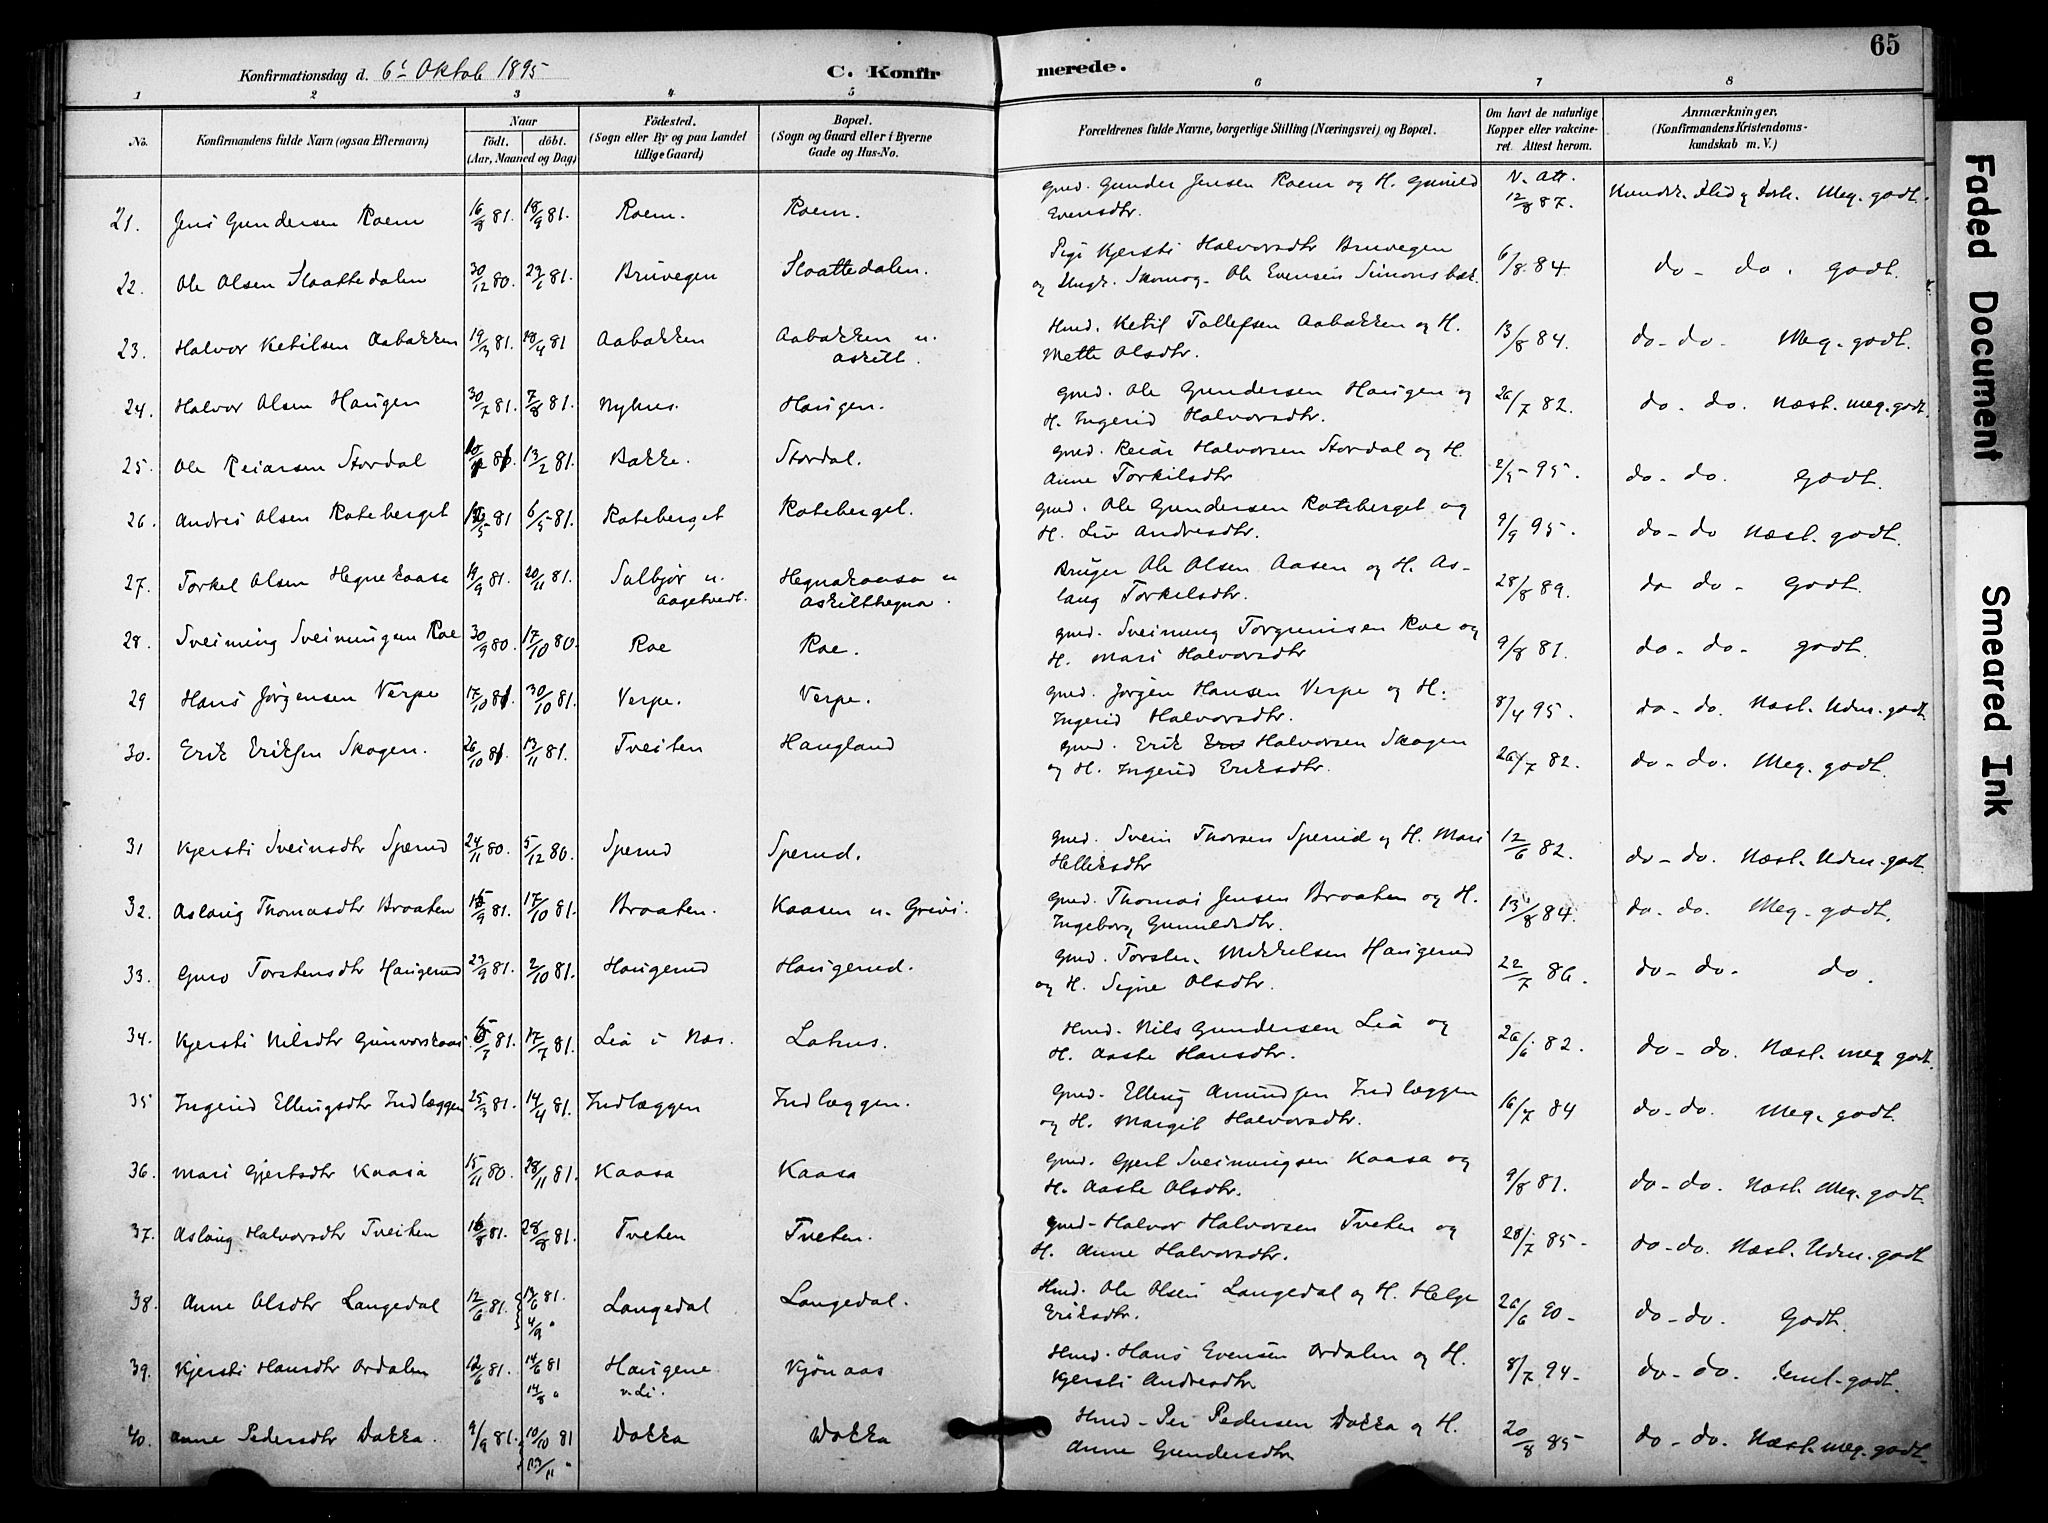 65
Konfirmationsdag d. 6t Oktob 1895
C. Konfirmerede.
1 2 3 4 5 6 7 8
No. Konfirmandens fulde Navn (ogsaa Efternavn) Naar födt. döbt. (Aar, Maaned og Dag) Födested. (Sogn eller By og paa Landet tillige Gaard) Bopæl. (Sogn og Gaard eller i Byerne Gade og Hus-No. Forældrenes fulde Navne, borgerlige Stilling (Næringsvei) og Bopæl. Om havt de naturlige Kopper eller vakcineret. Attest herom. Anmærkninger. (Konfirmandens Kristendomskundskab m. V.)
21. Jens Gundersen Roem 16/8 81. 18/9 81. Roem. Roem. Gmd. Gunder Jensen Roem og H. Gunild Evensdtr. V. Att. 12/8 87. Kundsk. Flid og Forh. Meg. godt.
22. Ole Olsen Slaattedalen 30/12 80. 81. Bruvegen Slaattedalen. Pige Kjersti Halvorsdtr Bruvegen og Ungk. Skomag. Ole Evensen Simonsbak. 6/8. 84. do - do. godt.
23. Halvor Ketilsen Aabakken 19/3 81. 18/4 81 Aabakken Aabakken u. Askilt. Hmd. Ketil Tollefsen Aabakken og H. Mette Olsdtr. 13/8 84. do - do. Meg. godt.
24. Halvor Olsen Haugen 30/7 81. 7/8 81. Nyhus. Haugen. Gmd. Ole Gundersen Haugen og H. Ingerid Halvorsdtr. 26/7 82. do - do. Næst. meg. godt.
25. Ole Reiarsen Stordal 13/2 81. Bakke. Stordal. Gmd. Reiar Halvorsen Stordal og H. Anne Torkilsdtr 2/5 95. do - do. Godt.
26. Andres Olsen Roteberget 81 6/5 81. Roteberget Roteberget. Gmd. Ole Gundersen Roteberget og H. Liv Andresdtr. 9/9 95. do - do Næst. godt.
27. Torkel Olsen Hegnekaasa 19/9 81. 20/11 81. Salbjør u. Aagetvedt. Hegnakaasa u Askilthegna. Bruger Ole Olsen Aasen og H. Aslaug Torkilsdtr. 28/8 89. do do - Godt.
28. Sveinung Sveinungsen Roe 30/9 80. 17/10 80. Roe Roe. Gmd. Sveinung Torgrimsen Roe og H. Mari Halvorsdtr 9/8 81. do - do - godt.
29 Hans Jørgensen Verpe 17/10 81 30/10 81. Verpe. Verpe. Gmd. Jørgen Hansen Verpe og H. Ingerid Halvorsdtr. 8/4 95. do - do. Næst. Udm. godt
30. Erik Eriksen Skogen. 26/10 81. 13/11 81. Tveiten Haugland Gmd. Erik Halvorsen Skogen og H. Ingerid Eriksdtr. 26/7 82. do - do. Meg. godt.
31 Kjersti Sveinsdtr Sperud 24/11 80. 5/12 80. Sperud Sperud. Gmd. Svein Thorsen Sperud og H. Mari Helleksdtr 12/6 82. do - do. Næst. Udm. godt
32. Aslaug Thomasdtr Braaten 81. 17/10 81. Braaten. Kaasen u. Grivi. Gmd. Thomas Jensen Braaten og H. Ingeborg Gunuldsdtr. 13/8 84. do - do. Meg. godt.
33. Guro Torstensdtr Haugerud 81. 2/10 81. Haugerud Haugerud. Gmd. Torsten Mikkelsen Haugerud og H. Signe Olsdtr. 22/7 86. do - do - do.
34. Kjersti Nilsdtr Gunvorskaas. 81. 17/7 81. Lia i Næs. Lahus. Hmd. Nils Gundersen Lia og H. Aaste Hansdtr. 26/6 82. do - do. Næst. meg godt.
35 Ingerid Ellingsdtr Indlæggen 25/3 81. 14/4 81. Indlæggen Indlæggen. Gmd. Elling Amundsen Indlæggen og H. Margit Halvorsdtr. 16/7 84 do - do. Meg. godt.
36. Mari Gjertsdtr Kaasa 15/11 80. 28/11 81. Kaasa Kaasa Gmd. Gjert Sveinungsen Kaasa og H. Aaste Olsdtr. 9/8 81. do - do. Næst. Meg. godt.
37. Aslaug Halvorsdtr Tveiten 16/8 81. 28/8 81. Tveten Tveten. Gmd. Halvor Halvorsen Tveten og H. Anne Halvorsdtr. 28/7 85 - do - do. Næst. Udm. godt
38. Anne Olsdtr Langedal 12/6 81. 81. 4/9 " Langedal Langedal. Hmd. Ole Olsen Langedal og H. Helge Eriksdtr. 26/6 90 - do - do. Godt.
39. Kjersti Hansdtr Ordalen 12/6 81. 14/6 81 14/8 " Haugene v. Li. Kjønaas Hmd. Hans Evensen Ordalen og H. Kjersti Andresdtr 8/7 94 - do - do. Teml. godt.
40. Anne Pedersdtr Dokka. 9/9 81. 10/10 81 13/11 " Dokka Dokka Hmd - Per Pedersen Dokka og H. Anne Gundersdtr 20/8 85 do - do. Næst. meg. godt.
Faded Document
Smeared Ink